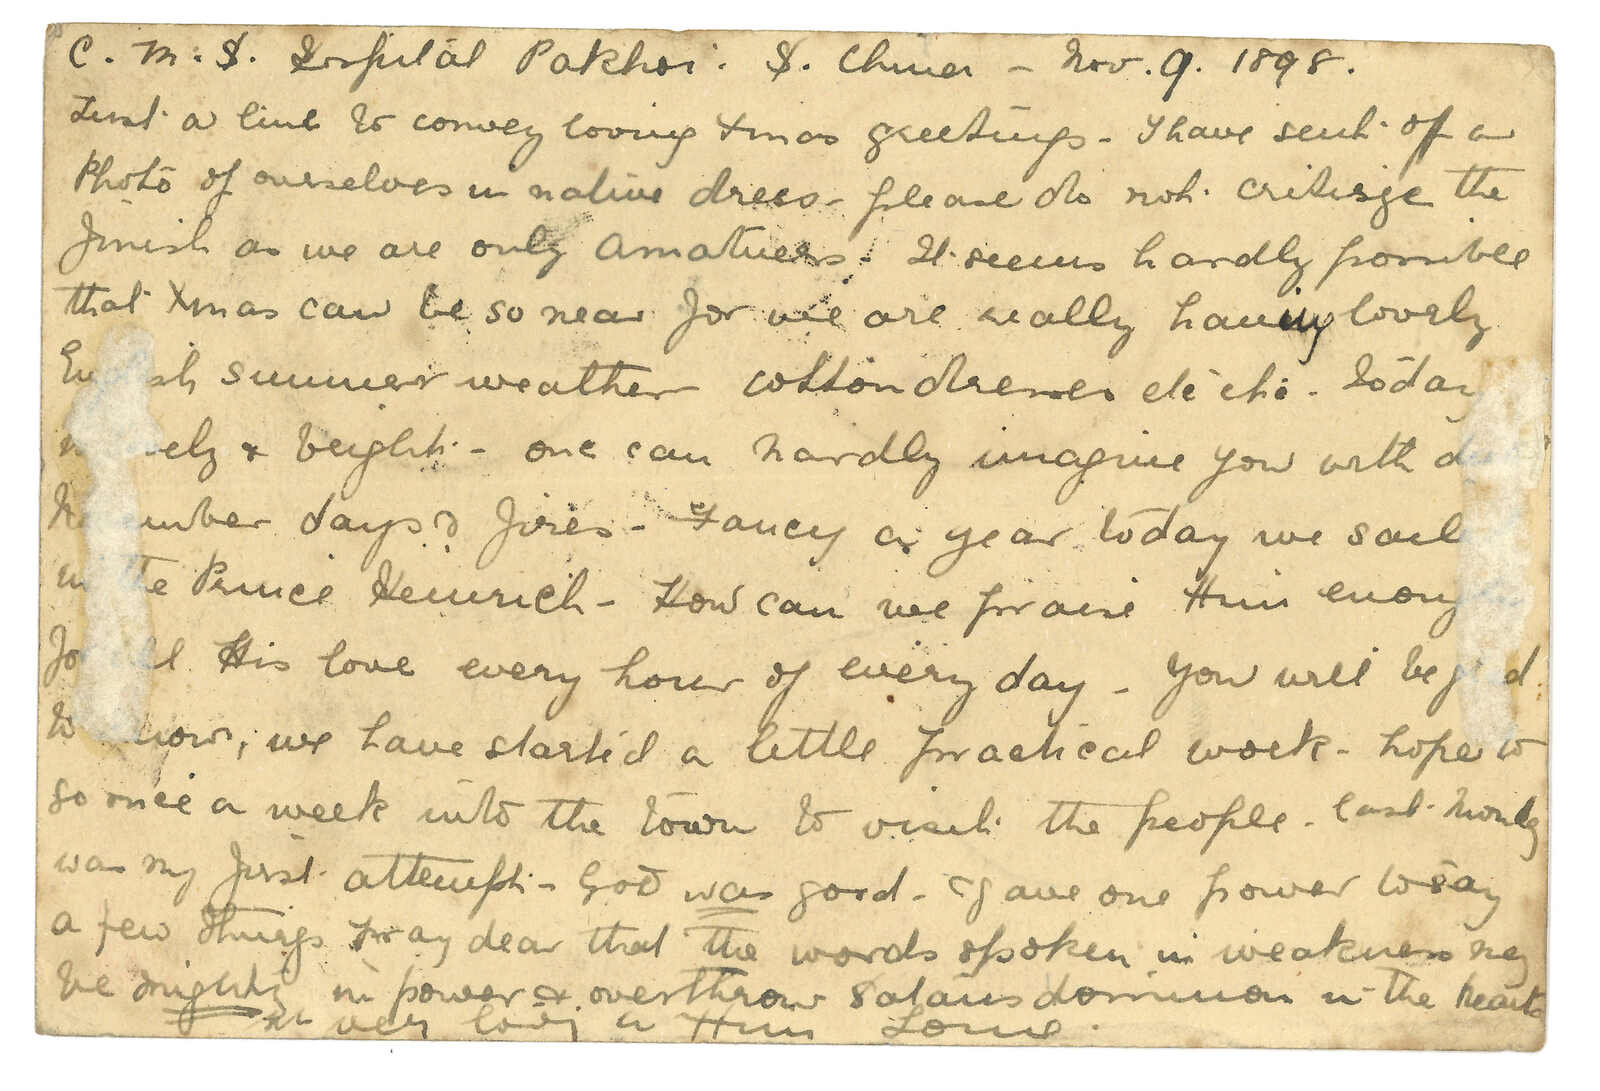 C. M. S. Hospital Pakhoi. S. China - Nov. 9. 1898.
Just a line to convey loving Xmas greetings - I have sent off a
Photo of ourselves in native dress - please do not critisize the
finish as we are only amatuers. It seems hardly possible
that Xmas can be so near for we are really having lovely
summer weather cotton dresses etc etc - Today
& bright - one can hardly imagine you with
days & fires - Fancy a year today we
Prince Heinrich - How can we praise Him
His love every hour of every day - You will be
, we have started a little practical work - hope to
go once a week into the town to visit the people - last
was my first attempt - God was good - & gave one power to say
a few things Pray dear that the words spoken in weakness may
be mighty in power & overthrow Satans dominion in the hearts
in Him